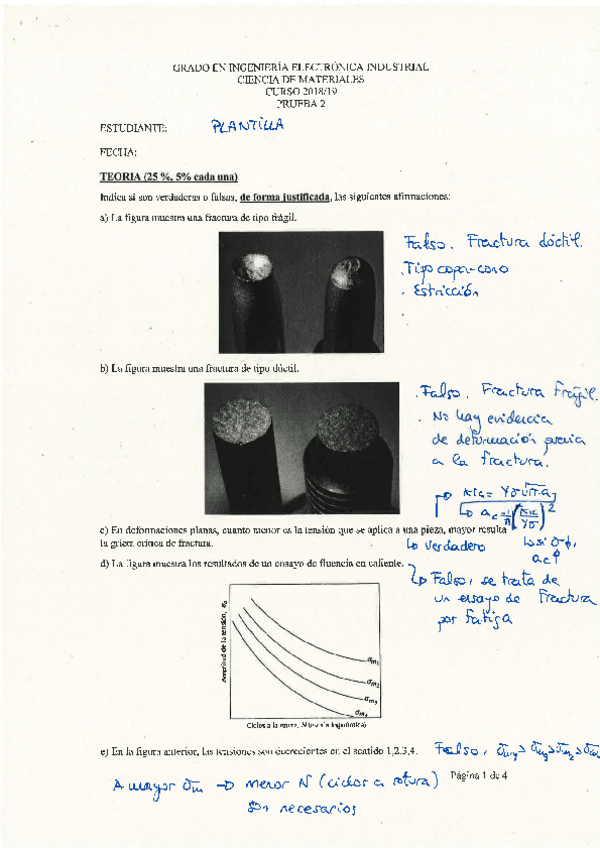 GRADO EN INGENIERÍA ELECTRÓNICA INDUSTRIAL
CIENCIA DE MATERIALES
CURSO 2018/19
PRUEBA 2
ESTUDIANTE: PLANTILLA
FECHA:
TEORIA (25 %, 5% cada una)
Indica si son verdaderas o falsas, de forma justificada, las siguientes afirmaciones:
a) La figura muestra una fractura de tipo frágil.
Falso. Fractura dúctil.
. Tipo copa-cono
. Estricción
b) La figura muestra una fractura de tipo dúctil.
. Falso. Fractura Frágil.
. No hay evidencia
de deformación previa
a la fractura.
KIC = Yσ√πa
ac = 1/π (KIC/Yσ)²
c) En deformaciones planas, cuanto menor es la tensión que se aplica a una pieza, mayor resulta
la grieta crítica de fractura.
↳ Verdadero
↳ si σ↓, ac↑
d) La figura muestra los resultados de un ensayo de fluencia en caliente.
↳ Falso, se trata de
un ensayo de Fractura
por fatiga
Amplitud de la tensión, σa
σm1
σm2
σm3
σm4
Ciclos a la rotura, N (escala logarítmica)
e) En la figura anterior, las tensiones son decrecientes en el sentido 1,2,3,4.
Falso, σm4 > σm3 > σm2 > σm
A mayor σm → menor N (ciclos a rotura)
son necesarios
Página 1 de 4